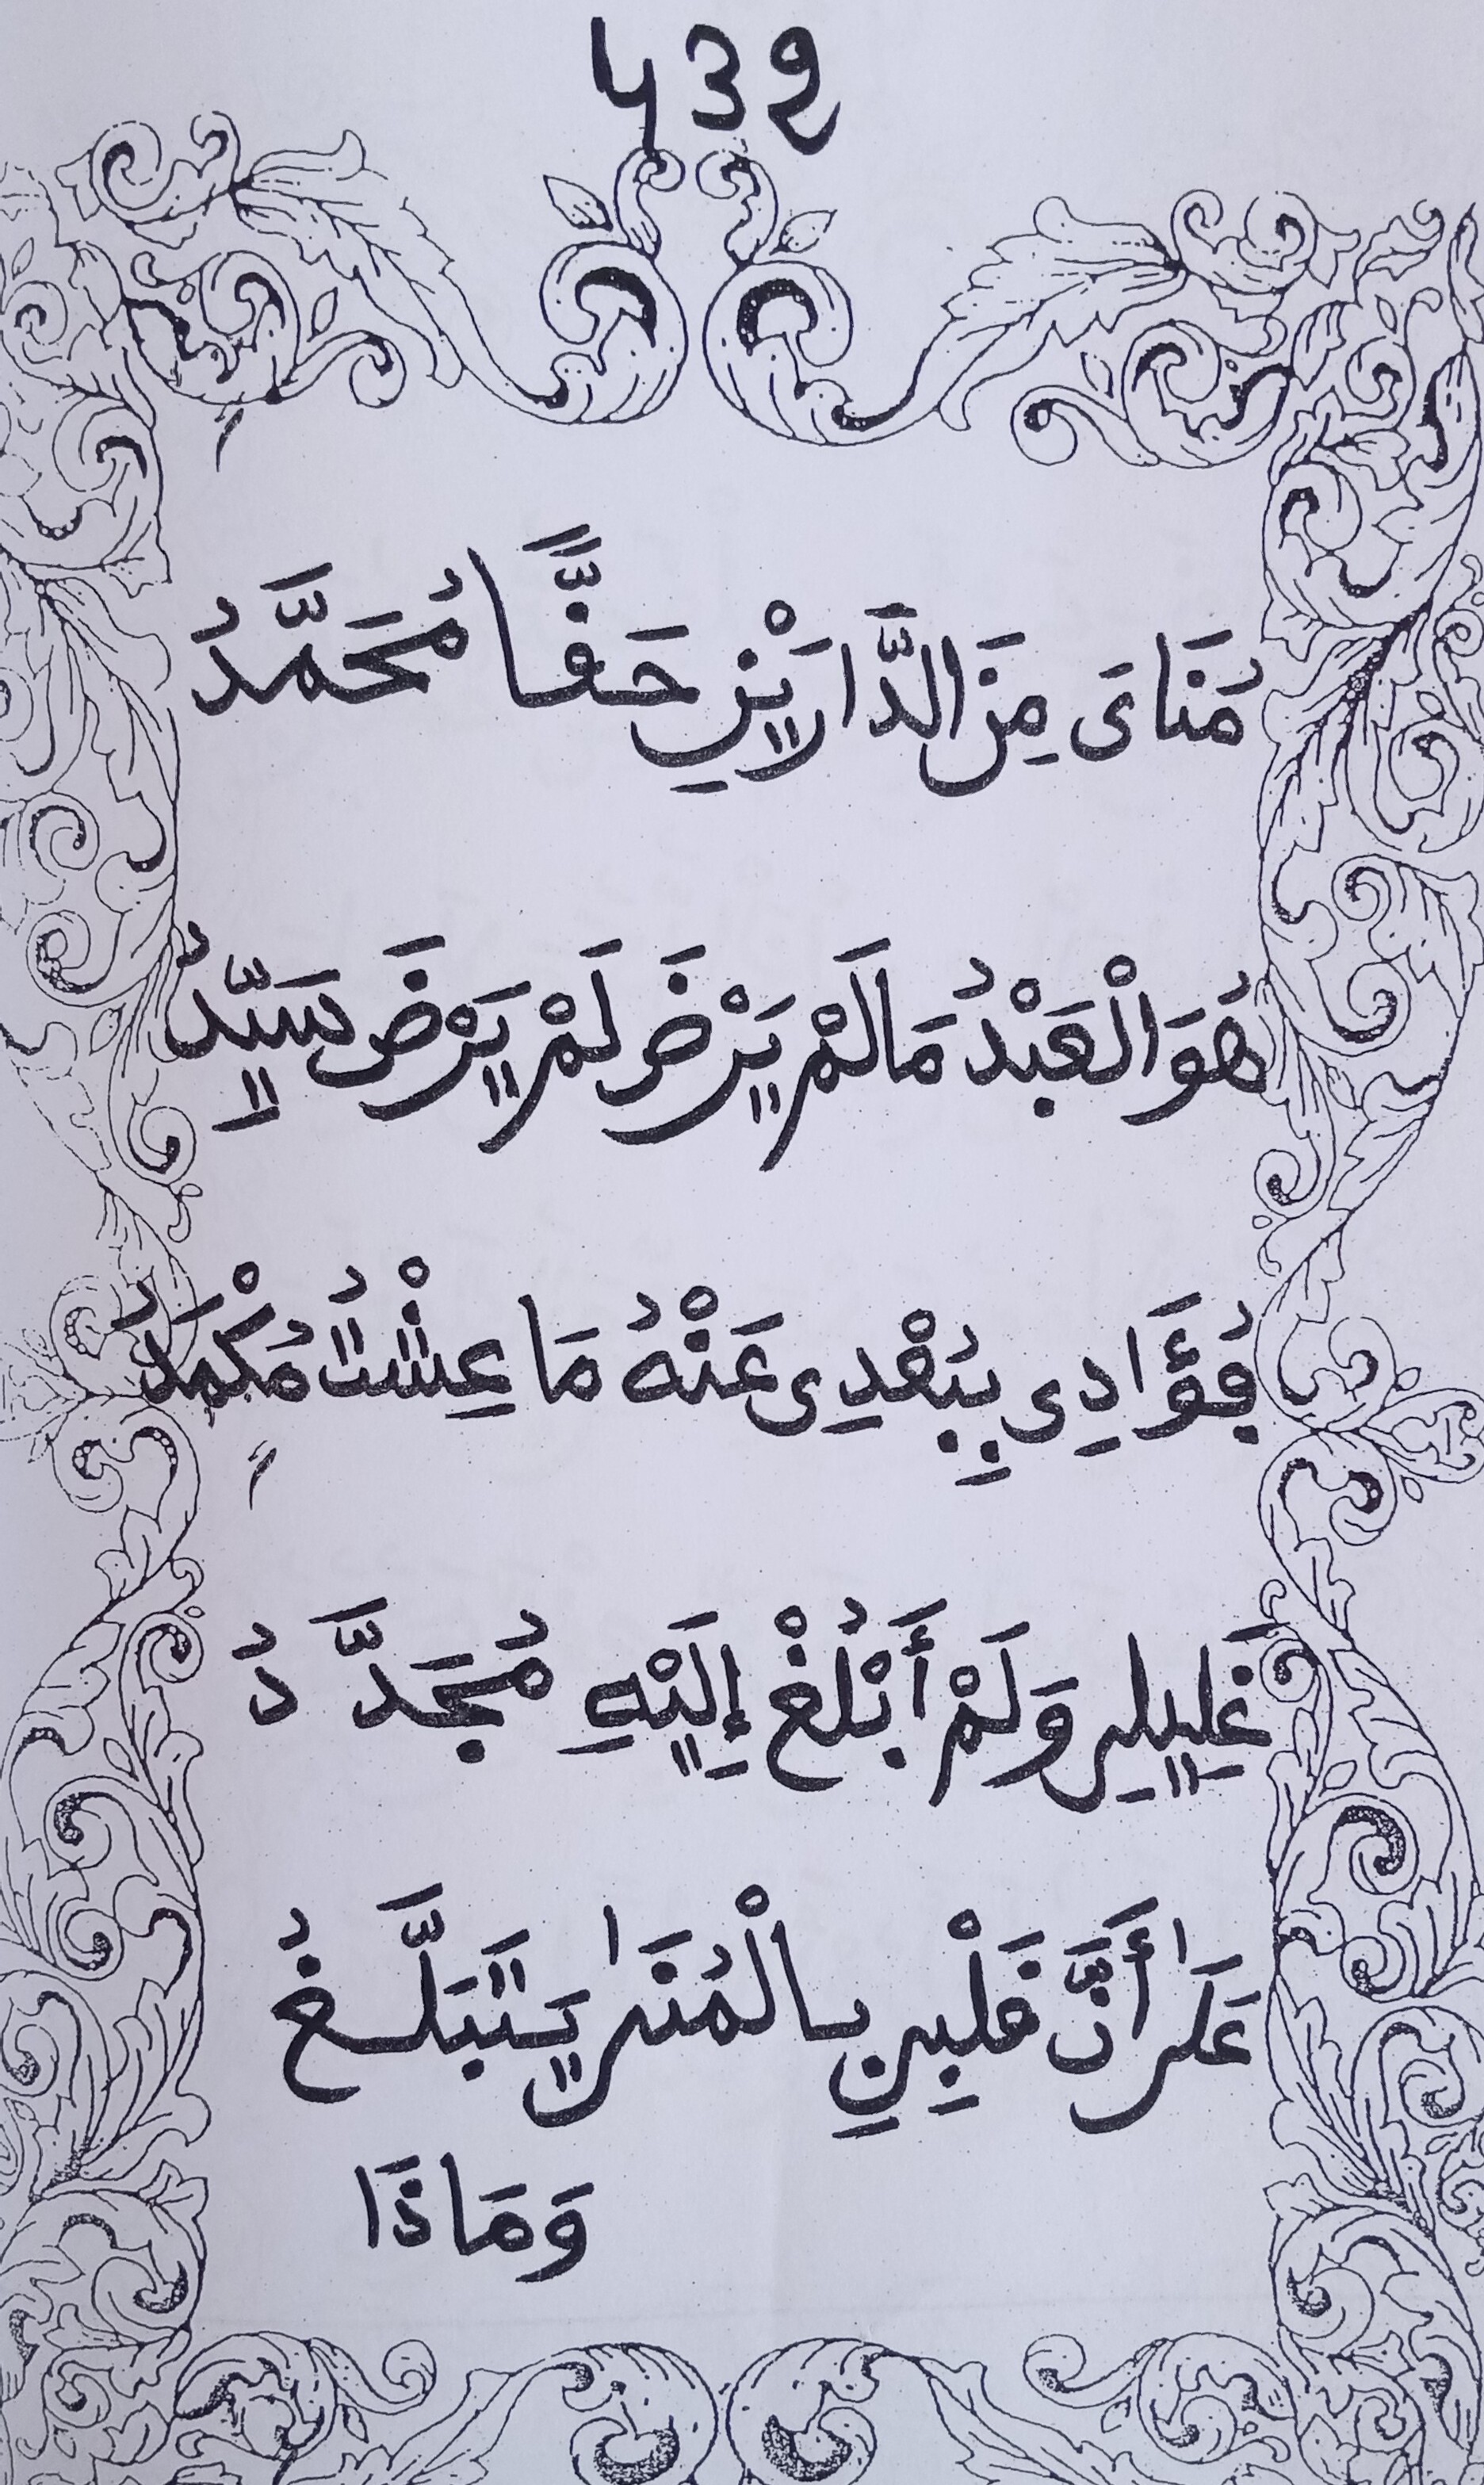 مُنَاىَ مِنَ الدَّارَيْنِ حَقًّا مُحَمَّدُ
هُوَ الْعَبْدُ مَا لَمْ يَرْضَ لَمْ يَرْضَ سَيِّدُ
فُؤَادِى بِبُعْدِى عَنْهُ مَا عِشْتُ مُكْمَدُ
غَلِيلِى وَلَمْ أَبْلُغْ إِلَيْهِ مُجَدَّدُ
عَلَىٰ أَنَّ قَلْبِى بِالْمُنَىٰ يَتَبَلَّغُ
وَمَاذَا